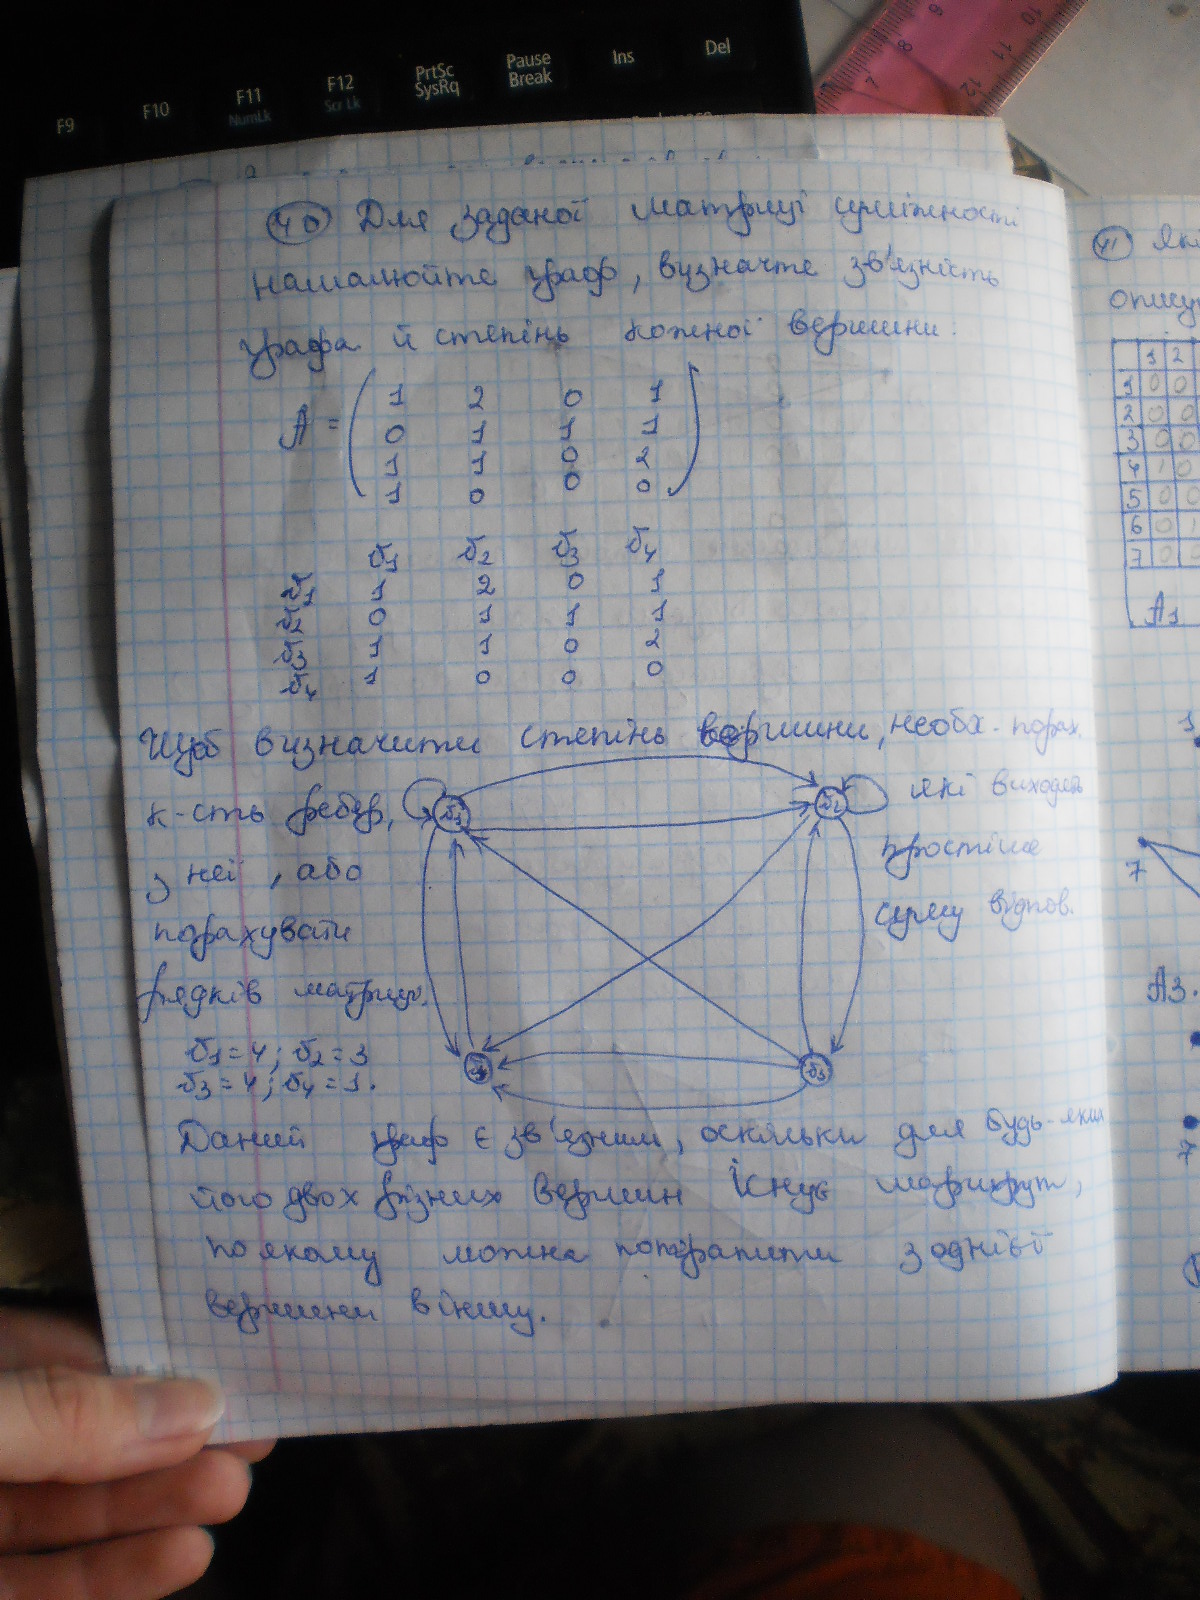 F9 F10 F11 F12 PrtSc Pause Ins Del
NumLk Scr Lk SysRq Break
6 8 4 10 11 12
40 Для заданої матриці суміжності
намалюйте граф, визначте зв'язність
графа й степінь кожної вершини:
A = ( 1 2 0 1
0 1 1 1
1 1 0 2
1 0 0 0 )
v1 v2 v3 v4
v1 1 2 0 1
v2 0 1 1 1
v3 1 1 0 2
v4 1 0 0 0
Щоб визначити степінь вершини, необх. порах.
к-сть ребер, v1 v2 які виходять
з неї, або простіше
порахувати суму відпов.
рядків матриці.
v1=4; v2=3
v3=4; v4=1.
v4 v3
Даний граф є зв'язним, оскільки для будь-яких
його двох різних вершин існує маршрут,
по якому можна потрапити з однієї
вершини в іншу.
41 Які
опису
1 2
1 0 0
2 0 0
3 0 0
4 1 0
5 0 0
6 0 1
7 0 0
A1
1
7
A3.
7